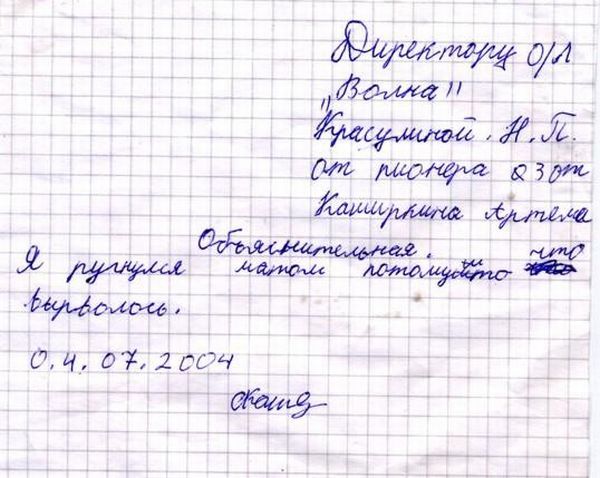 Директору о/л
"Волна"
Красулиной. Н.П.
от пионера 23от
Каширкина Артема
Объяснительная.
Я ругнулся матом потомучто что
вырволось.
0.4.07.2004